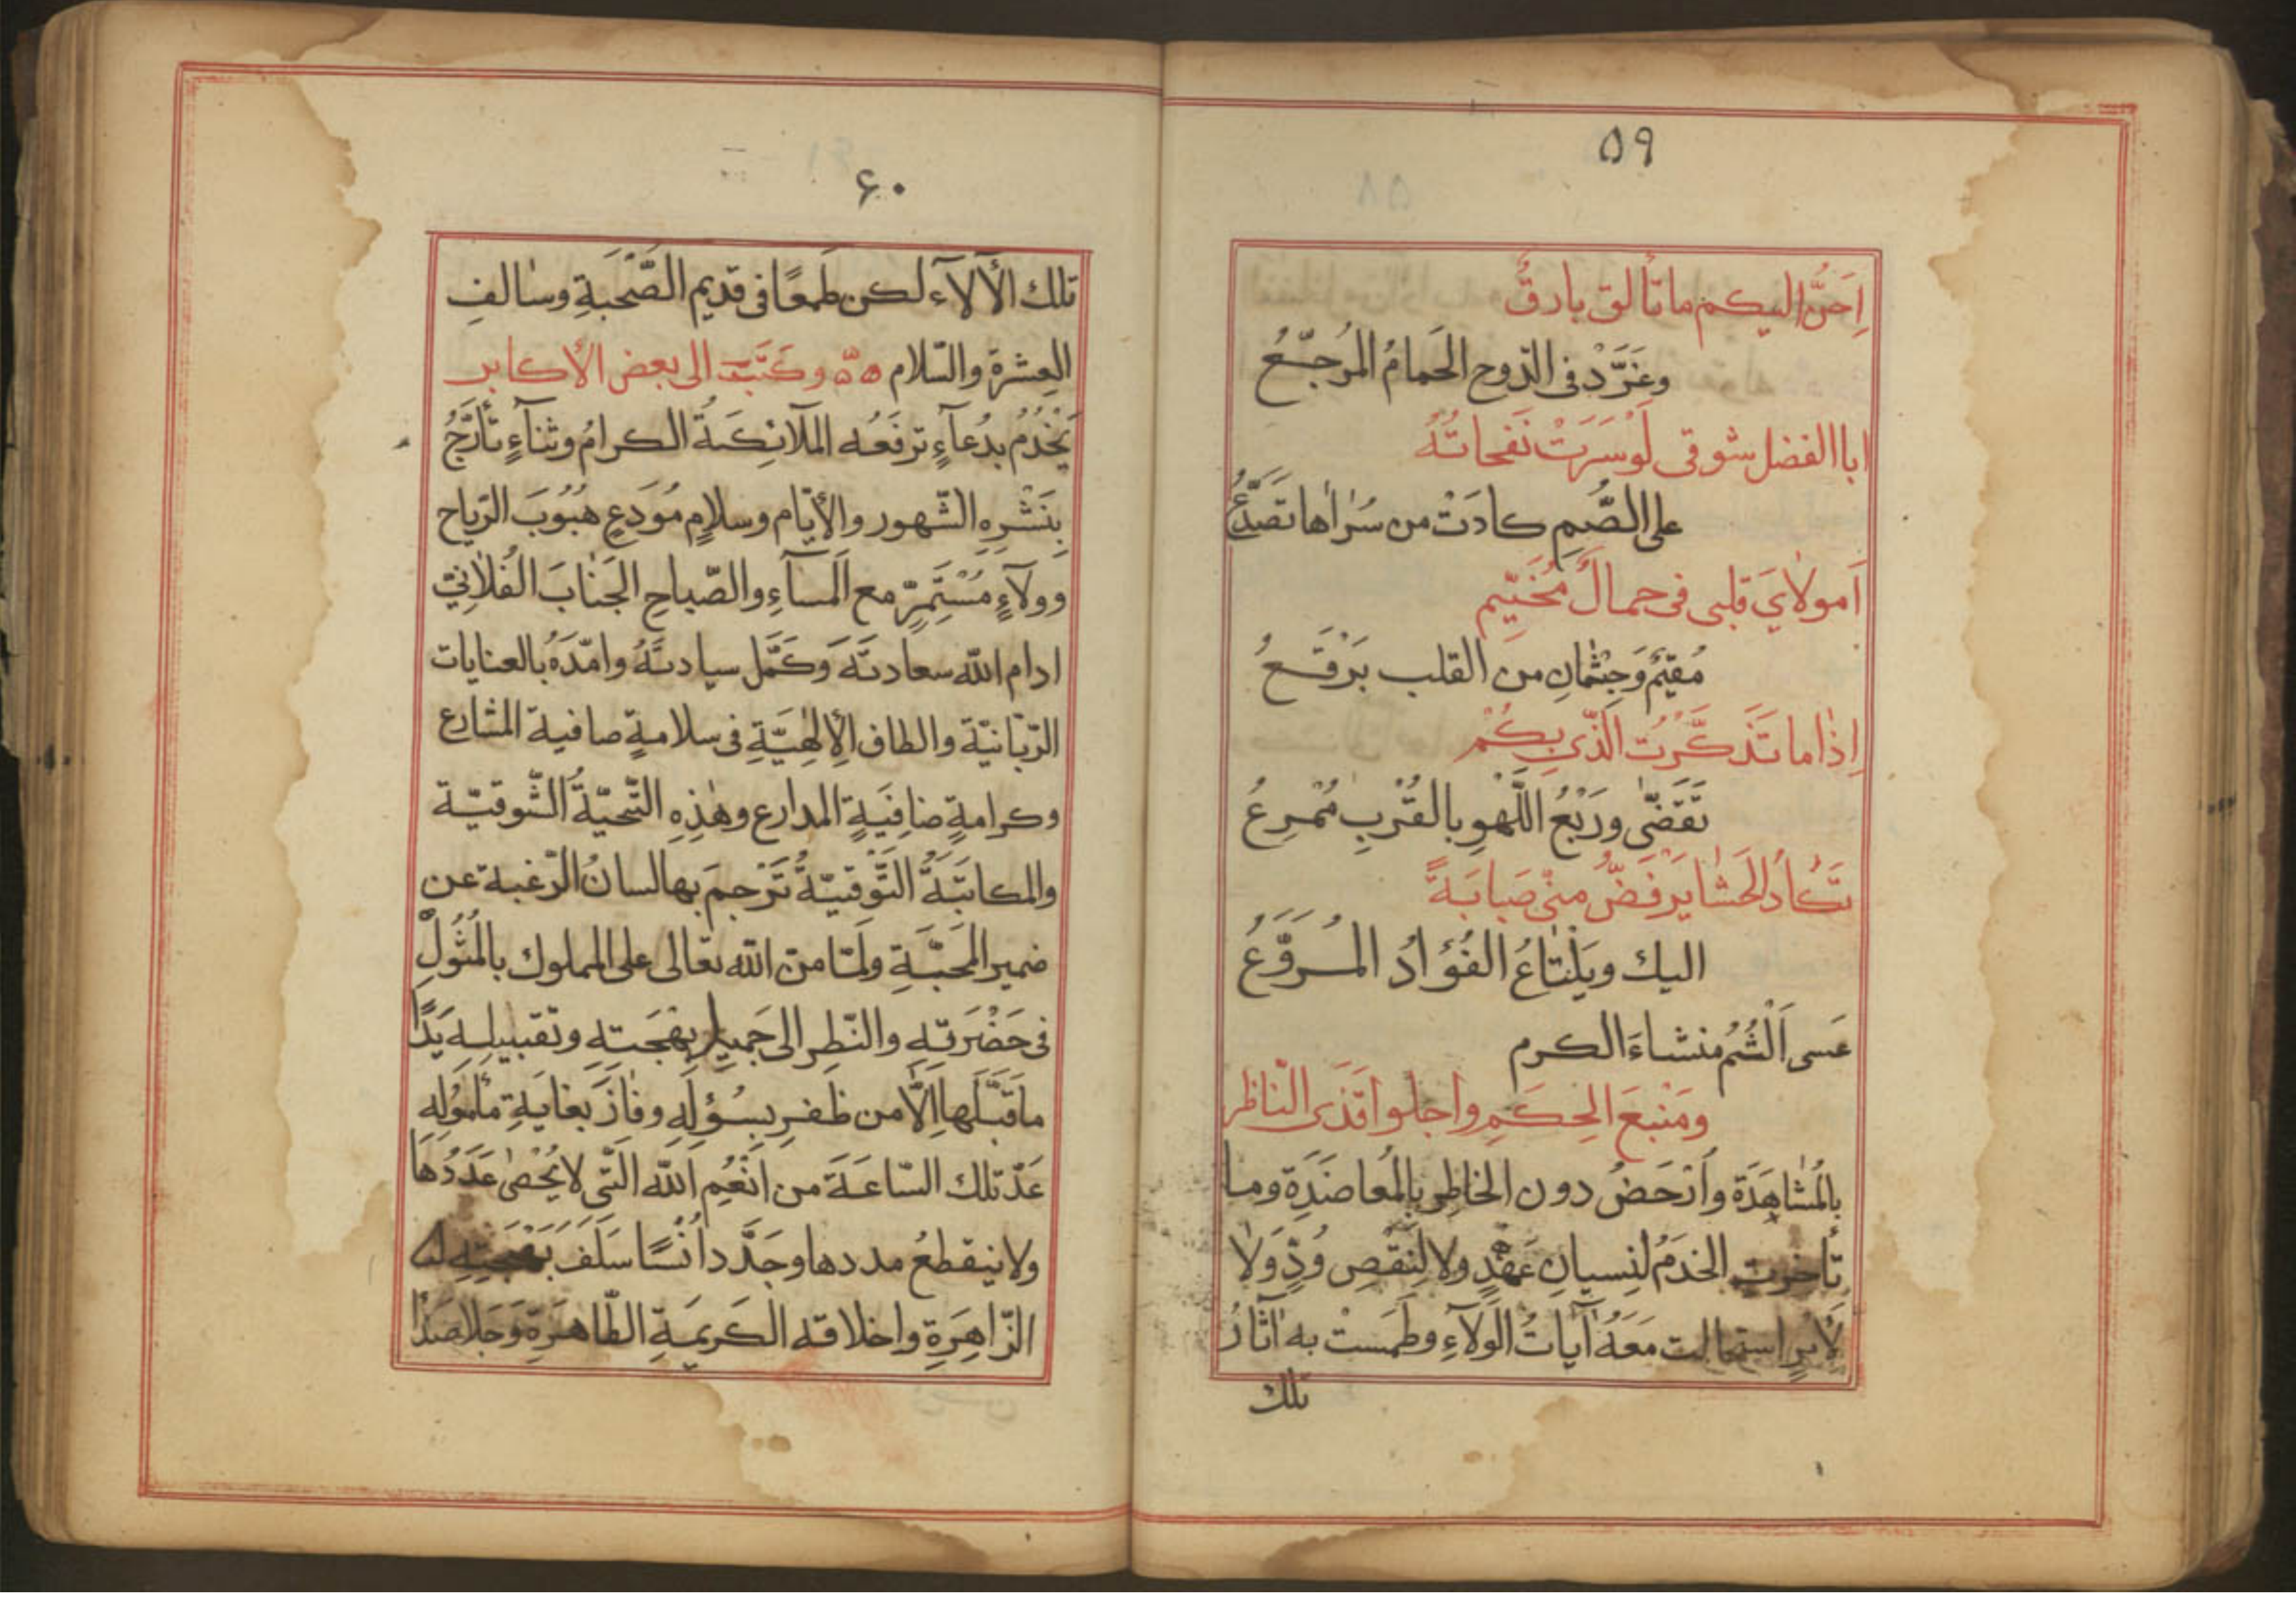 ۵۹
اَحِنُّ اليكم ما تألق بارقٌ
وغَرَّدْ فى الدّوح الحَمامُ المُرجّعُ
ابا الفضل شوقى لَوْسَرَتْ نَفحاتُهُ
على الصُّمِ كادَتْ من سُرٰاها تَصَدَّعُ
اَمولاٰيَ قلبى فى حمالٌ مُخَيّم
مُقيمٌ وَجِثْمٰانٍ من القلب بَرْقَعُ
اِذٰا ما تَذَكَّرْتُ الَّذى بِكُمْ
تَقَضّٰى ورَبْعُ اللَّهْوِ بالقُرْبِ مُمْرِعُ
تَكٰادُ الحَشٰا يَرْفَضُّ منّى صَبابَةً
اليك ويَلْتٰاعُ الفُؤادُ المُرَوَّعُ
عَسى اَلْثُمُ منشاءَ الكرم
ومَنْبَعَ الحِكَمِ واجلوا قَذَى النّاظر
بالمُشٰاهَدَة واَرْحَضُ دون الخاطِرِ بالمُعاضَدَةِ وما
تأخرتِ الخدَمُ لنِسيانِ عَهْدٍ ولا لِنَقْصِ وُدٍّ وَلاٰ
لأمرٍ استحالت مَعَهُ آيٰاتُ الوَلآءِ وطَمَسْت به آثارُ
تلك
۶۰
تلك الآلآء لكن طَمعًا فى قديم الصّحْبَةِ وسٰالفِ
العِشرةِ والسّلام ۵۵ وكَتَبَ الى بعض الأكابر
يَخْدُمُ بدُعآءٍ ترفَعُه الملآئِكَةُ الكرامُ وثنآءٍ تأرَّجُ
بِنَشْرِهِ الشّهور والأيّام وسلامٍ مُوَدعٍ هُبُوبَ الرّياح
وولآءٍ مُسْتَمِرٍّ مع المسآءِ والصّباحِ الجَنٰابَ الفُلاٰنِىّ
ادام الله سعادتَهُ وكَمَّل سيادتَهُ وامَدّهُ بالعنايات
الرّبّانيّة والطاف الإلٰهِيَّةِ فى سلامةٍ صافية المشارع
وكرامةٍ ضافِيَةٍ المدارع وهٰذِهِ التّحيّةُ الشّوقيّة
والمكاتَبَةُ التَّوقيّةُ تَرْجمَ بها لسانُ الرّغبة عن
ضمير المَحَبّةِ ولمّا منّ الله تعالى على المملوك بالمُثُولِ
فى حَضْرَتِهِ والنّظرِ الى جَميلِ بهْجَتِهِ وتقبيلِهِ يَدًا
ما قَبَّلَها اِلّا من ظَفرِ بسُؤلِهِ وفٰازَ بغايَةِ مأمُولِهِ
عَدّ تلك السّاعَةَ من اَنْعُمِ اللّه الَّتى لا يُحْصٰى عَدَدُهَا
ولا ينقطعُ مددها وجَدَّدَ اُنْسًا سَلَفَ بَهْجَتِهِ
الزّاهِرَةِ واخلاقه الكَريمَةِ الطّاهِرَةِ وَجَلا صَدَأ